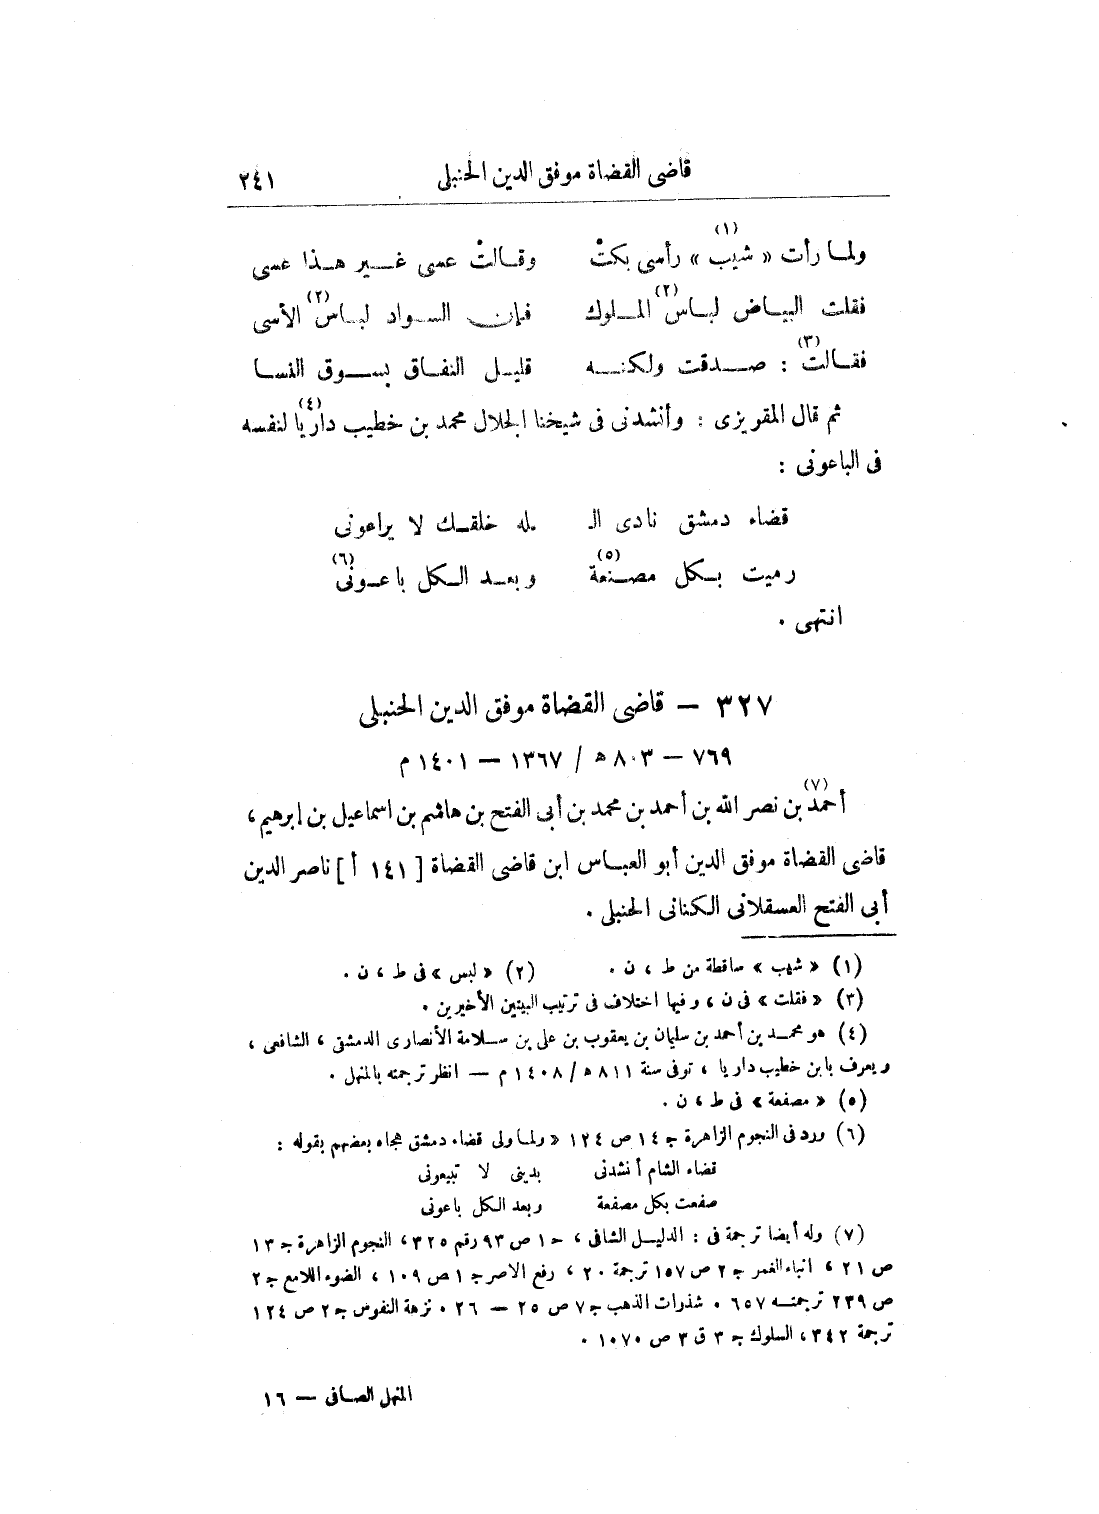 قاضى القضاة موفق الدين الحنبلى ٢٤١
ولمـا رأت « شيب (١) » رأسى بكتْ وقـالتْ عسى غـير هـذا عسى
فقلت البيـاض لبـاس (٢) المـلوك فإن السـواد لبـاس (٢) الأسى
فقـالت (٣) : صـدقت ولكنـه قليـل النفـاق بسـوق النسـا
ثم قال المقريزى : وأنشدنى فى شيخنا الجلال محمد بن خطيب داريا (٤) لنفسه
فى الباعونى :
قضاء دمشق نادى الـ ـله خلقـك لا يراعونى
رميت بـكل مصـنعة (٥) وبعـد الـكل باعـونى (٦)
انتهى .
٣٢٧ – قاضى القضاة موفق الدين الحنبلى
٧٦٩ – ٨٠٣ ه / ١٣٦٧ – ١٤٠١ م
أحمد (٧) بن نصر الله بن أحمد بن محمد بن أبى الفتح بن هاشم بن اسماعيل بن إبرهيم ،
قاضى القضاة موفق الدين أبو العبـاس ابن قاضى القضاة [ ١٤١ أ ] ناصر الدين
أبى الفتح العسقلانى الكنانى الحنبلى .
(١) « شهب » ساقطة من ط ، ن . (٢) « لبس » فى ط ، ن .
(٣) « فقلت » فى ن ، وفيها اختلاف فى ترتيب البيتين الأخيرين .
(٤) هو محمـد بن أحمد بن سليمان بن يعقوب بن على بن سـلامة الأنصارى الدمشقى ، الشافعى ،
ويعرف بابن خطيب داريا ، توفى سنة ٨١١ ه / ١٤٠٨ م – انظر ترجمته بالمنهل .
(٥) « مصفعة » فى ط ، ن .
(٦) ورد فى النجوم الزاهرة ج ١٤ ص ١٢٤ « ولمـا ولى قضاء دمشق هجاه بعضهم بقوله :
قضاء الشام أنشدنى بدينى لا تبيعونى
صفعت بكل مصفعة وبعد الـكل باعونى
(٧) وله أيضا ترجمة فى : الدليـل الشافى ، ج ١ ص ٩٣ رقم ٣٢٥ ، النجوم الزاهرة ج ١٣
ص ٢١ ، انباء الغمر ج ٢ ص ١٥٧ ترجمة ٢٠ ، رفع الاصر ج ١ ص ١٠٩ ، الضوء اللامع ج ٢
ص ٢٣٩ ترجمتـه ٦٥٧ . شذرات الذهب ج ٧ ص ٢٥ – ٢٦ . نزهة النفوس ج ٢ ص ١٢٤
ترجمة ٣٤٢ ، السلوك ج ٣ ق ٣ ص ١٠٧٠ .
المنهل الصـافى – ١٦